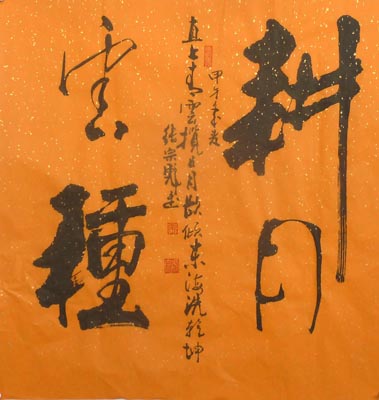 耕月
雲種
甲午
直上青雲攬日月欲傾東海洗乾坤
張宗